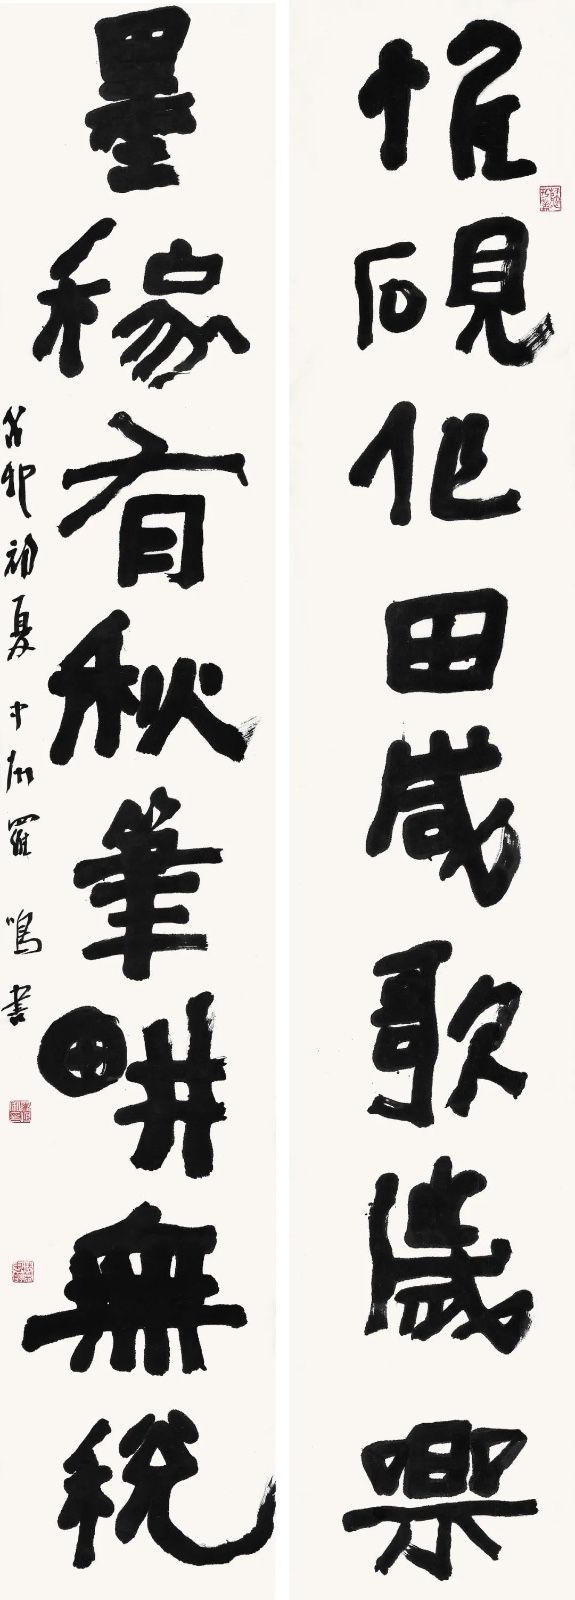 惟硯作田咸歌歲樂
墨稼有秋筆畊無稅
癸卯初夏中州羅鳴書